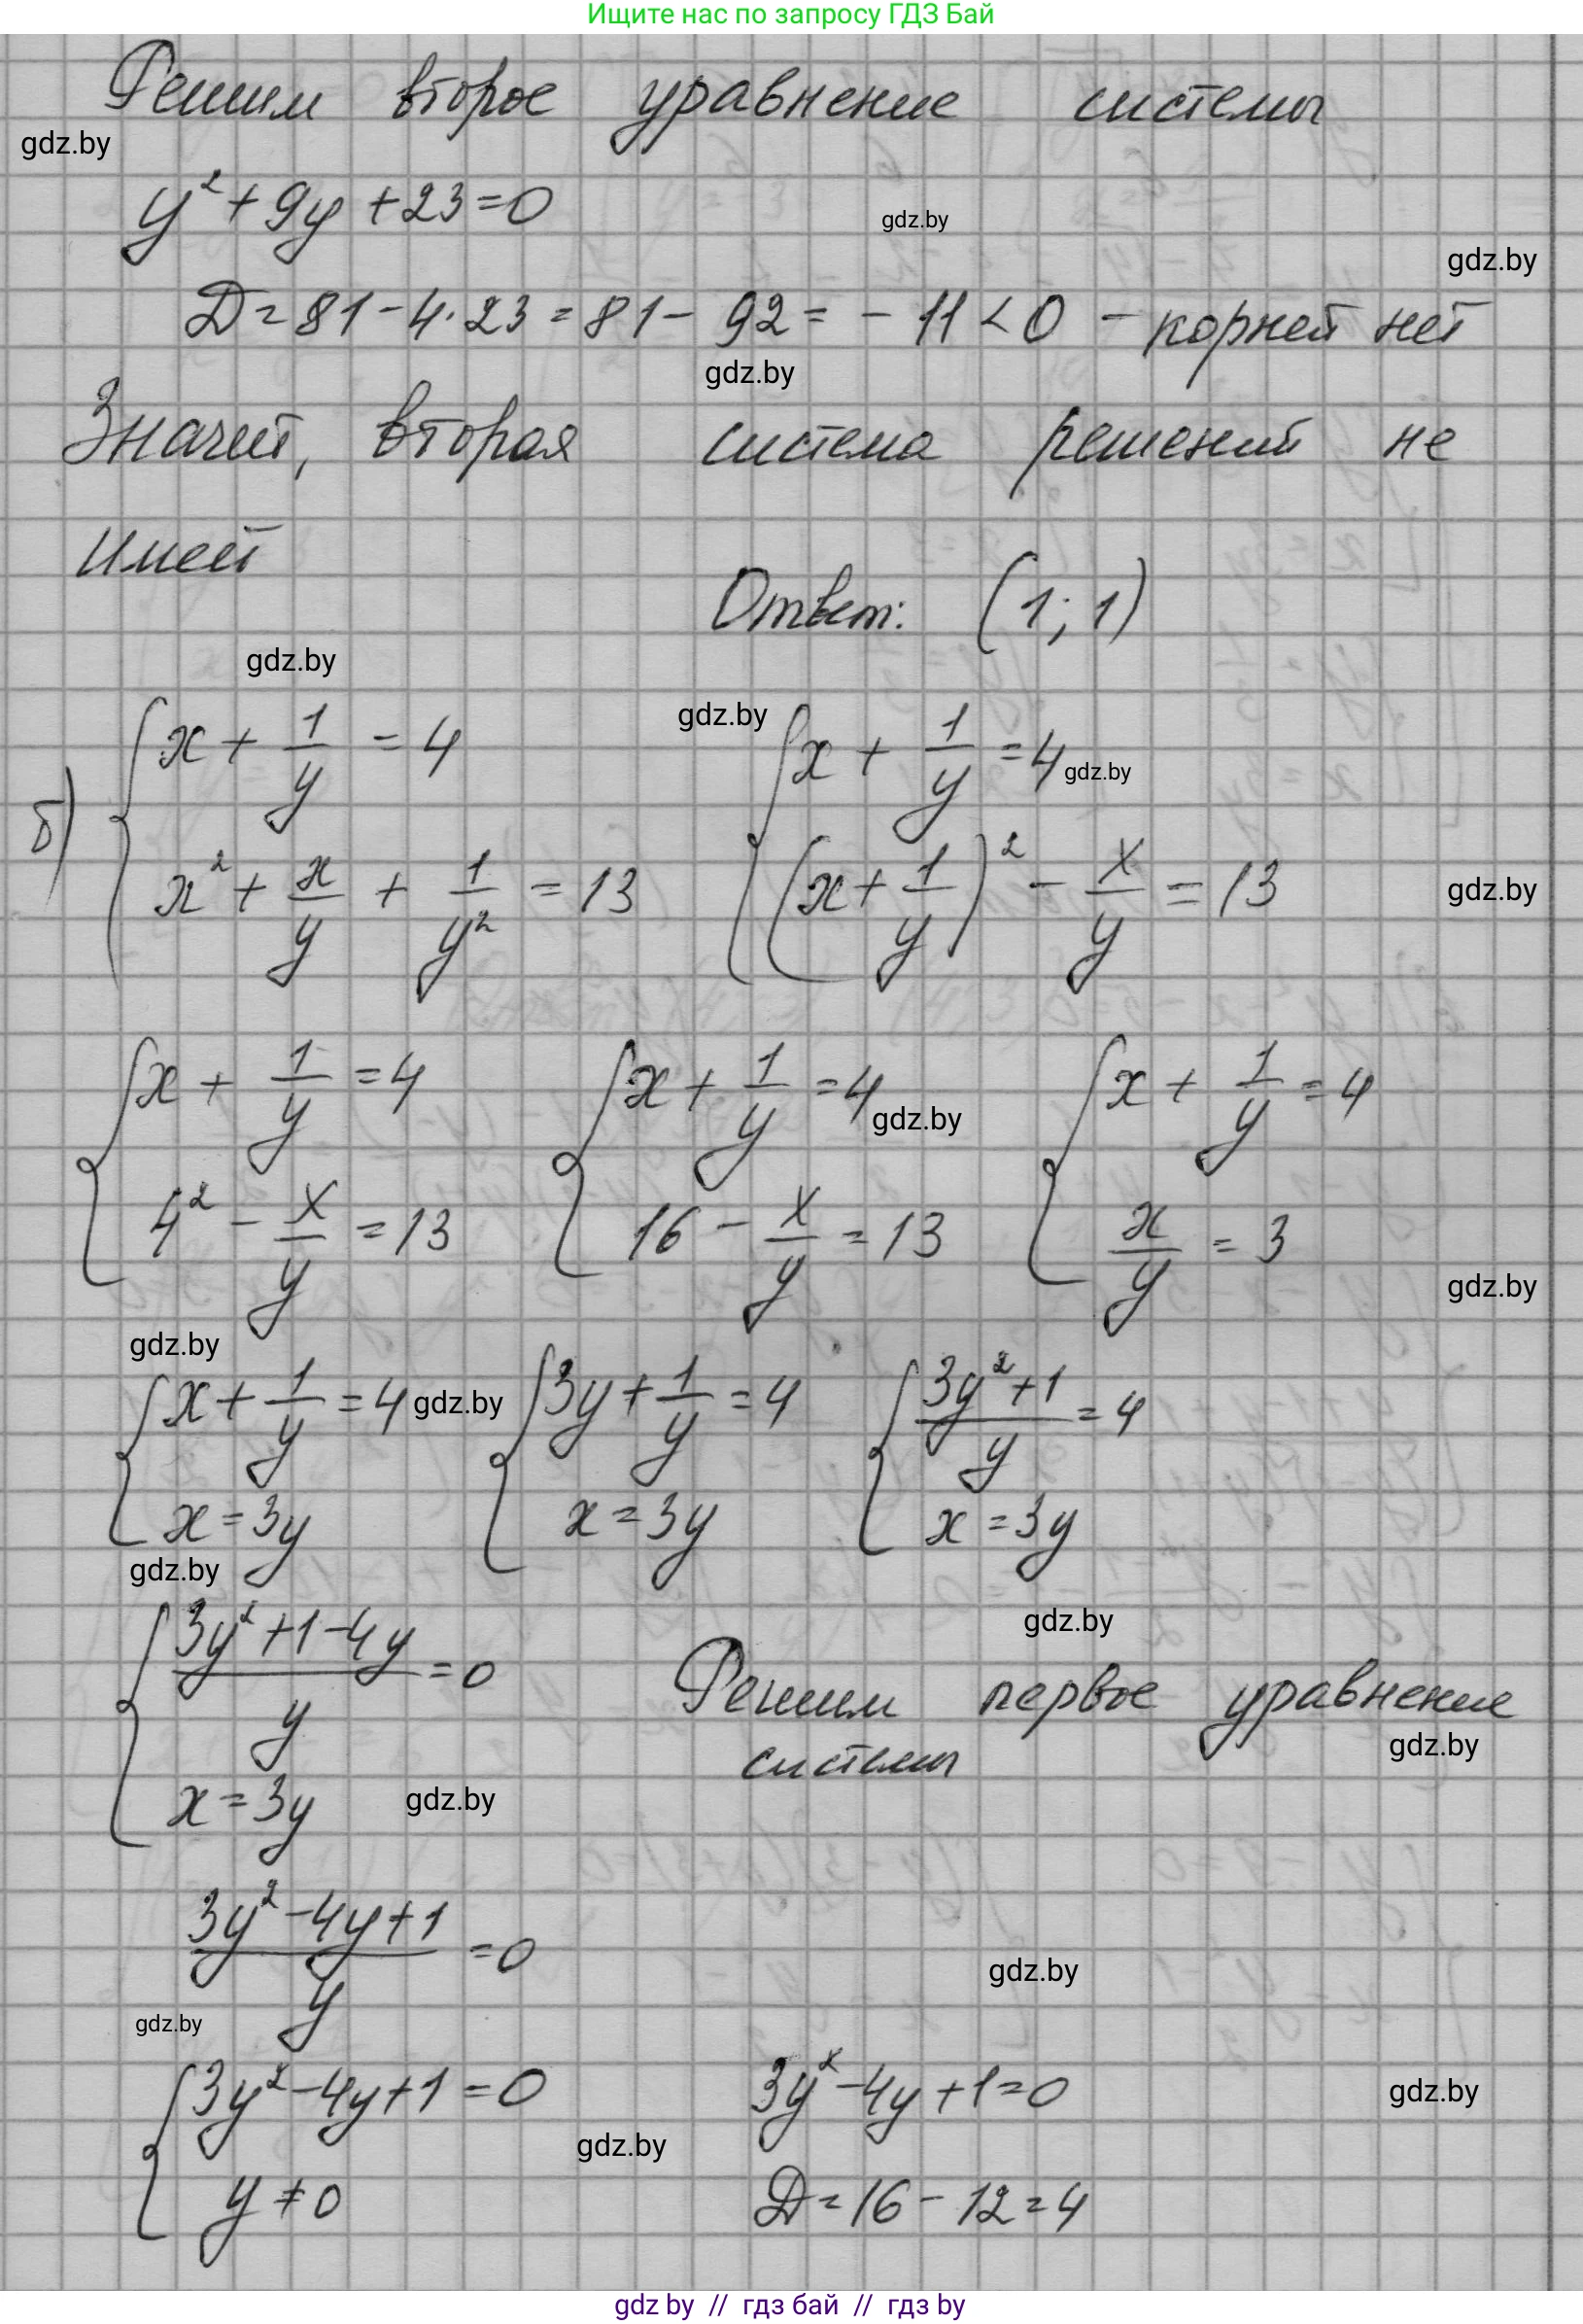 Ищите нас по запросу ГДЗ Бай
Решим второе уравнение системы
gdz.by
y² + 9y + 23 = 0
gdz.by
gdz.by
D = 81 - 4·23 = 81 - 92 = - 11 < 0 - корней нет
gdz.by
Значит, вторая система решений не
имеет
Ответ: (1; 1)
gdz.by
gdz.by
б) { x + 1/y = 4 { x + 1/y = 4
gdz.by
x² + x/y + 1/y² = 13 (x + 1/y)² - x/y = 13
gdz.by
{ x + 1/y = 4 { x + 1/y = 4 { x + 1/y = 4
gdz.by
4² - x/y = 13 16 - x/y = 13 x/y = 3
gdz.by
gdz.by
{ x + 1/y = 4 gdz.by { 3y + 1/y = 4 { (3y² + 1)/y = 4
x = 3y x = 3y x = 3y
gdz.by
gdz.by
{ (3y² + 1 - 4y)/y = 0 Решим первое уравнение
gdz.by
системы
x = 3y gdz.by
(3y² - 4y + 1)/y = 0
gdz.by
gdz.by
{ 3y² - 4y + 1 = 0 3y² - 4y + 1 = 0
gdz.by
gdz.by
y ≠ 0 D = 16 - 12 = 4
gdz by // гдз бай // гдз by